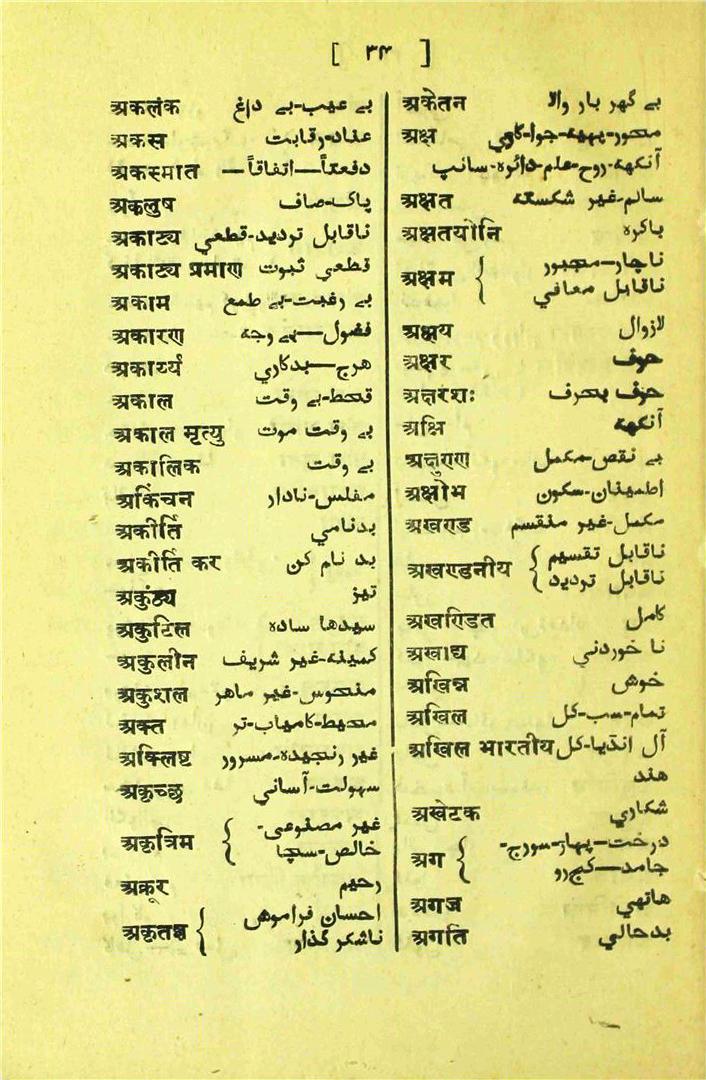 [ ۳۴ ]
अकलंक بے عیب-بے داغ
अकस عناد-رقابت
अकस्मात دفعتاً—اتفاقاً—
अकलुष پاک-صاف
अकाट्य ناقابل تردید-قطعي
अकाट्य प्रमाण قطعي ثبوت
अकाम بے رغبت-بے طمع
अकारण فضول—بے وجه
अकार्य्य هرج—بدکاري
अकाल قحط-بے وقت
अकाल मृत्यु بے وقت موت
अकालिक بے وقت
अकिंचन مفلس-نادار
अकीर्ति بدنامي
अकीर्ति कर بد نام کن
अकुंठ्य تیز
अकुटिल سیدها ساده
अकुलीन کمینه-غیر شریف
अकुशल منحوس-غیر ماهر
अक्त محیط-کامیاب-تر
अक्लिष्ट غیر رنجیده-مسرور
अकृच्छ سہولت-آساني
अकृत्रिम { غیر مصنوعی-
خالص-سچا
अक्रूर رحیم
अकृतघ्न { احسان فراموش
ناشکر گذار
अकेतन بے گهر بار والا
अक्ष محور-پہیه-جوا-گاڑي
آنکهه-روح-علم-دائره-سانپ
अक्षत سالم-غیر شکسته
अक्षतयोनि باکره
अक्षम { ناچار—مجبور
ناقابل معافي
अक्षय لازوال
अक्षर حرف
अक्षरशः حرف بحرف
अक्षि آنکهه
अक्षुण्ण بے نقص-مکمل
अक्षोभ اطمینان-سکون
अखण्ड مکمل-غیر منقسم
अखण्डनीय { ناقابل تقسیم
ناقابل تردید
अखण्डित کامل
अखाद्य نا خوردني
अखिन्न خوش
अखिल تمام-سب-کل
अखिल भारतीय آل انڈیا-کل
هند
अखेटक شکاري
अग { درخت—پہاڑ-سورج-
جامد—کج رو
अगज هاتهي
अगति بدحالي